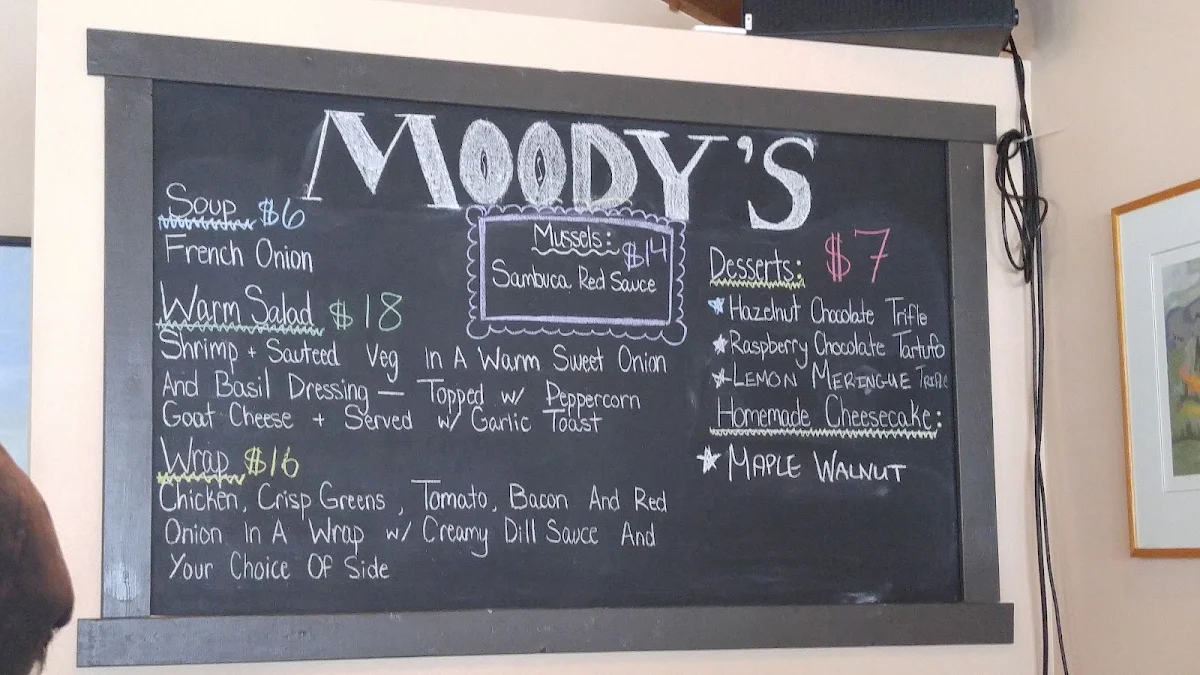 MOODY'S
Soup $6
French Onion
Warm Salad $18
Shrimp + Sauteed Veg In A Warm Sweet Onion
And Basil Dressing — Topped w/ Peppercorn
Goat Cheese + Served w/ Garlic Toast
Wrap $16
Chicken, Crisp Greens, Tomato, Bacon And Red
Onion In A Wrap w/ Creamy Dill Sauce And
Your Choice Of Side
Mussels: $14
Sambuca Red Sauce
Desserts: $7
Hazelnut Chocolate Trifle
Raspberry Chocolate Tartufo
LEMON MERINGUE TRIFLE
Homemade Cheesecake:
MAPLE WALNUT